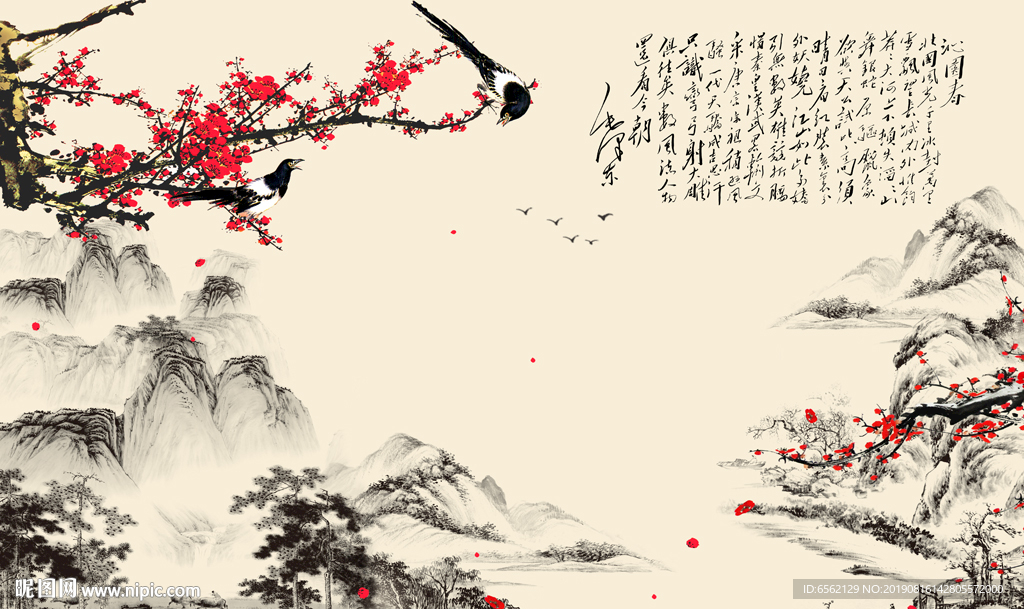 沁園春
北國風光千里冰封万里
雪飄望長城内外惟餘
莽々大河上下頓失滔々山
舞銀蛇原驅臘象
欲与天公試比高須
晴日看红装素裹分
外妖娆江山如此多嬌
引無數英雄競折腰
惜秦皇漢武略輸文
采唐宗宋祖稍遜風
騷一代天驕成吉思汗
只識彎弓射大雕
俱往矣數風流人物
還看今朝
毛澤東
昵图网 www.nipic.com
ID:6562129 NO:20190816142805572000